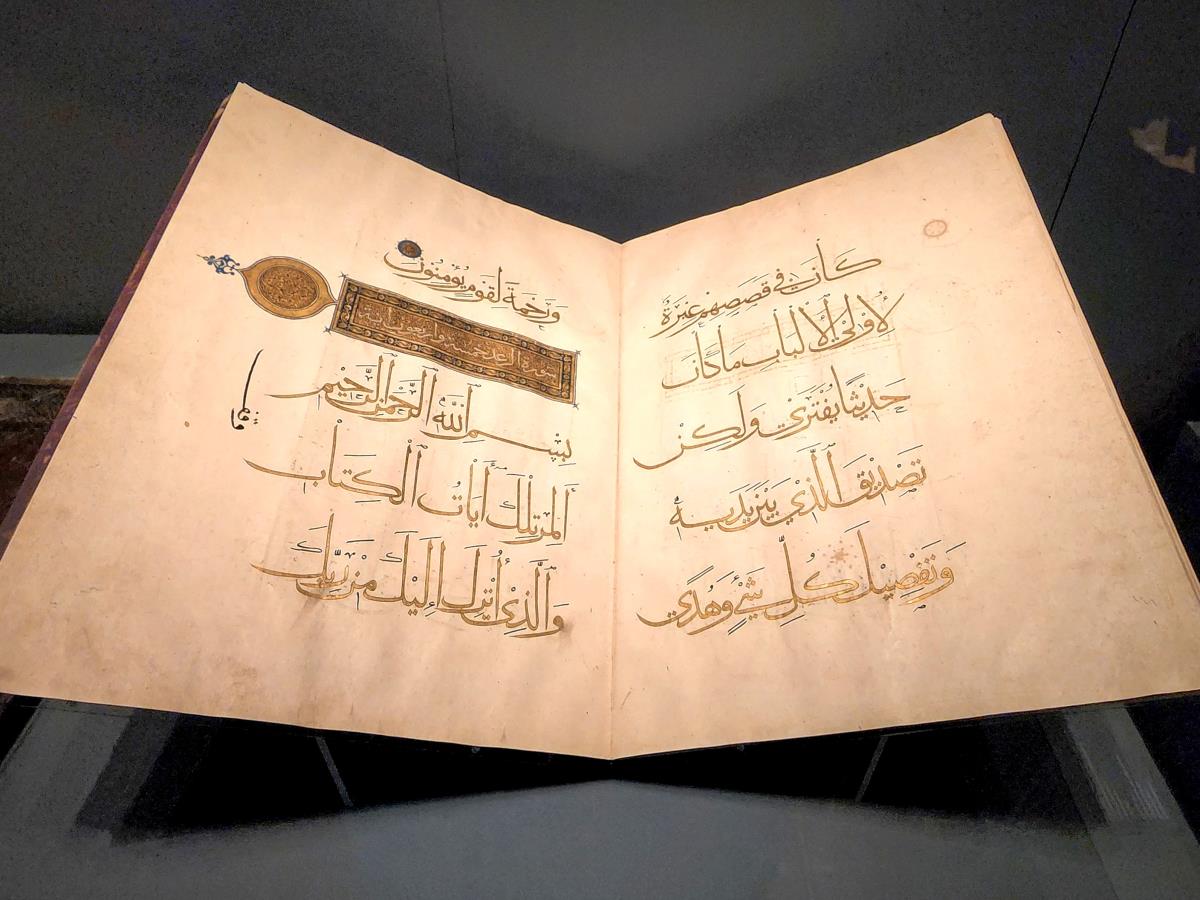 كَانَ فِي قَصَصِهِمْ عِبْرَةٌ
لِأُولِي الْأَلْبَابِ مَا كَانَ
حَدِيثًا يُفْتَرَى وَلَكِنْ
تَصْدِيقَ الَّذِي بَيْنَ يَدَيْهِ
وَتَفْصِيلَ كُلِّ شَيْءٍ وَهُدًى
وَرَحْمَةً لِقَوْمٍ يُؤْمِنُونَ
سورة الرعد خمسة واربعون اية
بِسْمِ اللَّهِ الرَّحْمَنِ الرَّحِيمِ
الٓمٓر تِلْكَ آيَاتُ الْكِتَابِ
وَالَّذِي أُنْزِلَ إِلَيْكَ مِنْ رَبِّكَ